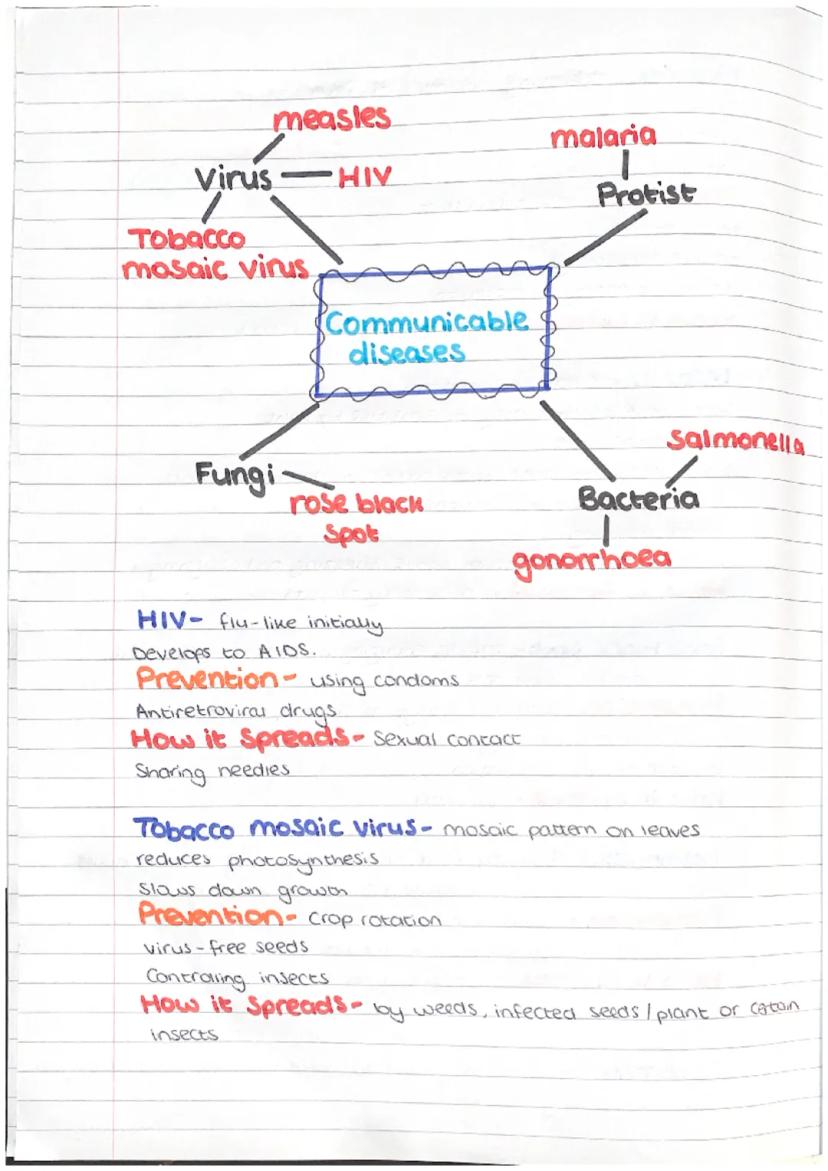 measles
Virus
HIV
Tobacco
mosaic virus
malaria
Protist
Communicable
diseases
Fungi
rose black
spot
Salmonella
Bacteria
gonorrhoea
HIV- flu-like initially
Develops to AIDS.
Prevention- using condoms
Antiretroviral drugs
How it Spreads- Sexual contact
Sharing needles
Tobacco mosaic virus- mosaic pattern on leaves
reduces photosynthesis
Slows down growth
Prevention- Crop rotation
virus-free seeds
Controlling insects
How it Spreads- by weeds, infected seeds/plant or certain
insects